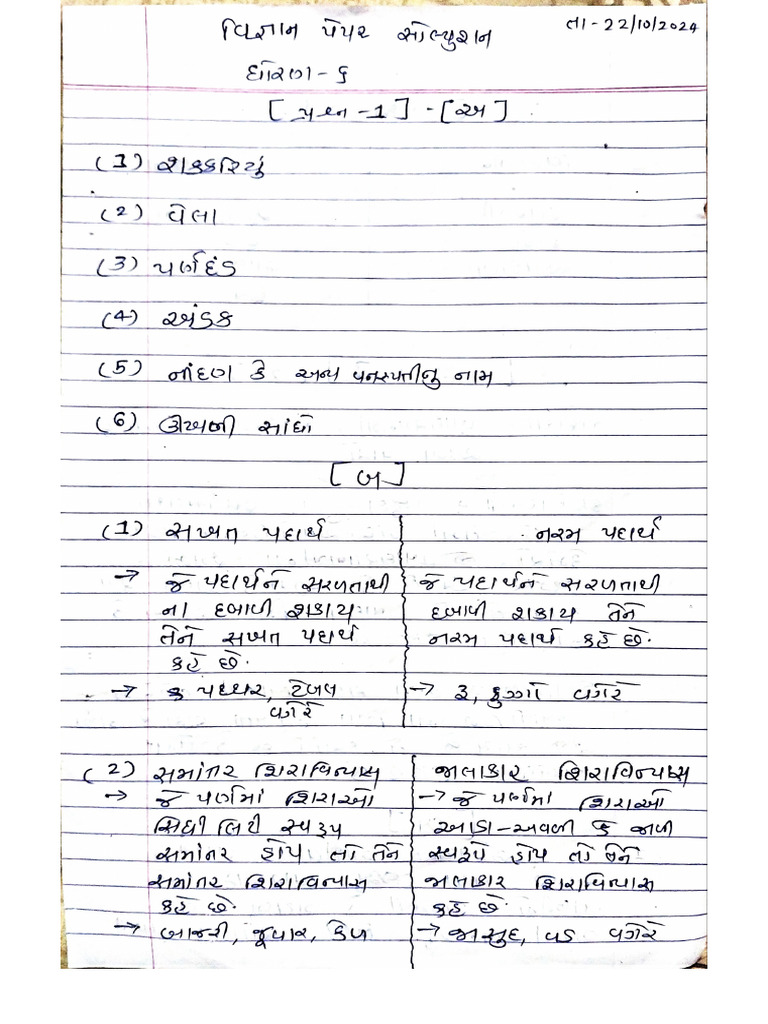 વિજ્ઞાન પેપર સોલ્યુશન તા-22/10/2024
ધોરણ-૬
[પ્રશ્ન-1]-[અ]
(1) શક્કરિયું
(2) વેલા
(3) પર્ણદંડ
(4) અંડક
(5) નીંદણ કે અન્ય વનસ્પતીનુ નામ
(6) ઊખળી સાંધો
[બ]
(1) સખત પદાર્થ નરમ પદાર્થ
→ જે પદાર્થને સરળતાથી જે પદાર્થને સરળતાથી
ના દબાવી શકાય દબાવી શકાય તેને
તેને સખત પદાર્થ નરમ પદાર્થ કહે છે.
કહે છે.
→ પથ્થર, ટેબલ → રૂ, ફુગ્ગો વગેરે
વગેરે
(2) સમાંતર શિરાવિન્યાસ જાલાકાર શિરાવિન્યાસ
→ જે પર્ણમાં શિરાઓ → જે પર્ણમાં શિરાઓ
સિધી લિટી સ્વરૂપ આડા-અવળી કે જાળી
સમાંતર હોય તો તેને સ્વરૂપે હોય તો તેને
સમાંતર શિરાવિન્યાસ જાલાકાર શિરાવિન્યાસ
કહે છે. કહે છે.
→ બાજરી, જૂવાર, કેળ → જાસુદ, વડ વગેરે